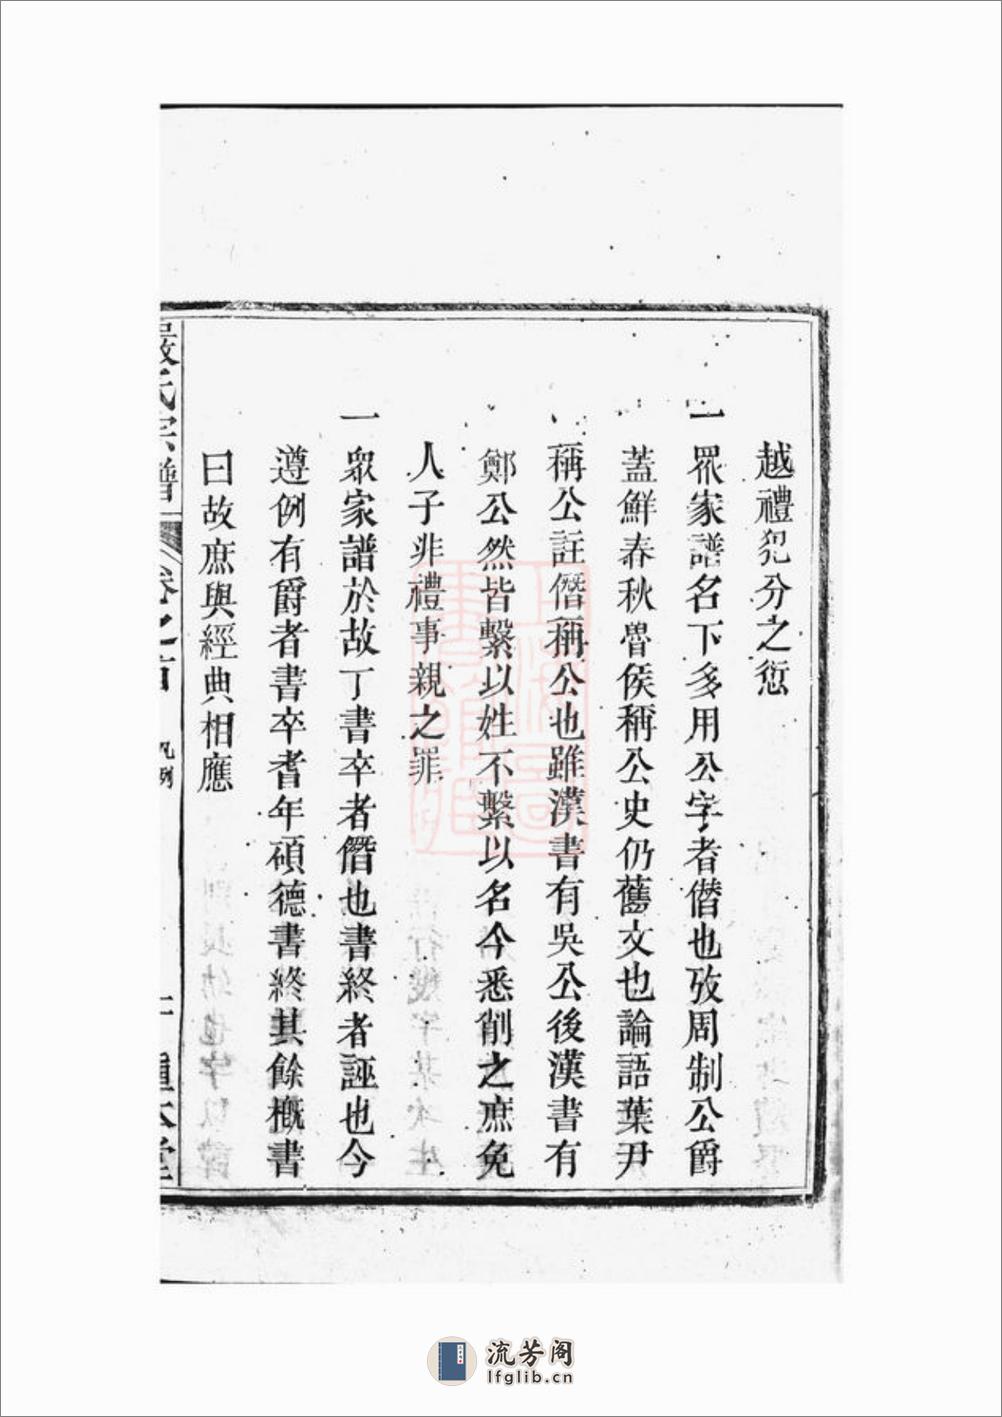 越禮犯分之愆
一眾家譜名下多用公字者僭也攷周制公爵
蓋鮮春秋魯侯稱公史仍舊文也論語葉尹
稱公註僭稱公也雖漢書有吳公後漢書有
鄭公然皆繫以姓不繫以名今悉削之庶免
人子非禮事親之罪
一眾家譜於故丁書卒者僭也書終者誣也今
遵例有爵者書卒耆年碩德書終其餘概書
曰故庶與經典相應
嚴氏宗譜 卷之首 凡例
流芳阁
lfglib.cn